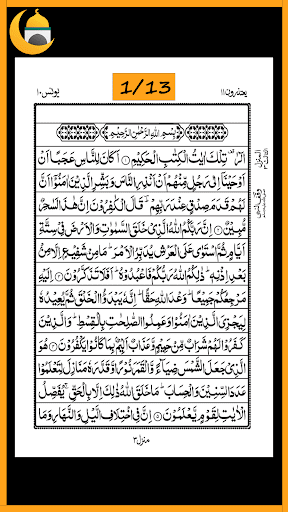 یعتذرون ۱۱
1/13
یونس ۱۰
بِسْمِ اللّٰهِ الرَّحْمٰنِ الرَّحِیْمِ
الٓرٰ ۫ تِلْكَ اٰیٰتُ الْكِتٰبِ الْحَكِیْمِ ۝ اَكَانَ لِلنَّاسِ عَجَبًا اَنْ
اَوْحَیْنَاۤ اِلٰی رَجُلٍ مِّنْهُمْ اَنْ اَنْذِرِ النَّاسَ وَبَشِّرِ الَّذِیْنَ اٰمَنُوْۤا اَنَّ
لَهُمْ قَدَمَ صِدْقٍ عِنْدَ رَبِّهِمْ ؔ قَالَ الْكٰفِرُوْنَ اِنَّ هٰذَا لَسٰحِرٌ
مُّبِیْنٌ ۝ اِنَّ رَبَّكُمُ اللّٰهُ الَّذِیْ خَلَقَ السَّمٰوٰتِ وَالْاَرْضَ فِیْ سِتَّةِ
اَیَّامٍ ثُمَّ اسْتَوٰی عَلَی الْعَرْشِ یُدَبِّرُ الْاَمْرَ ؕ مَا مِنْ شَفِیْعٍ اِلَّا مِنْۢ
بَعْدِ اِذْنِهٖ ؕ ذٰلِكُمُ اللّٰهُ رَبُّكُمْ فَاعْبُدُوْهُ ؕ اَفَلَا تَذَكَّرُوْنَ ۝ اِلَیْهِ
مَرْجِعُكُمْ جَمِیْعًا ؕ وَعْدَ اللّٰهِ حَقًّا ؕ اِنَّهٗ یَبْدَؤُا الْخَلْقَ ثُمَّ یُعِیْدُهٗ
لِیَجْزِیَ الَّذِیْنَ اٰمَنُوْا وَعَمِلُوا الصّٰلِحٰتِ بِالْقِسْطِ ؕ وَالَّذِیْنَ
كَفَرُوْا لَهُمْ شَرَابٌ مِّنْ حَمِیْمٍ وَّعَذَابٌ اَلِیْمٌۢ بِمَا كَانُوْا یَكْفُرُوْنَ ۝ هُوَ
الَّذِیْ جَعَلَ الشَّمْسَ ضِیَآءً وَّالْقَمَرَ نُوْرًا وَّقَدَّرَهٗ مَنَازِلَ لِتَعْلَمُوْا
عَدَدَ السِّنِیْنَ وَالْحِسَابَ ؕ مَا خَلَقَ اللّٰهُ ذٰلِكَ اِلَّا بِالْحَقِّ ۚ یُفَصِّلُ
الْاٰیٰتِ لِقَوْمٍ یَّعْلَمُوْنَ ۝ اِنَّ فِی اخْتِلَافِ الَّیْلِ وَالنَّهَارِ وَمَا
منزل ۳